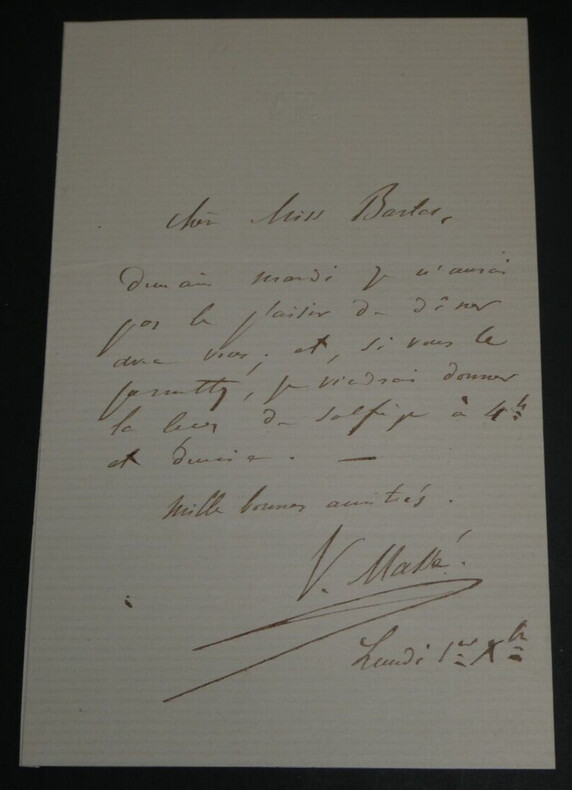 Chère Miss
Demain mardi je n'aurai
pas le plaisir de dîner
avec vous; et, si vous le
permettez, je viendrai donner
la leçon de solfège à 4h
et demie. —
Mille bonnes amitiés.
V. Massé.
Lundi 1er Xbre